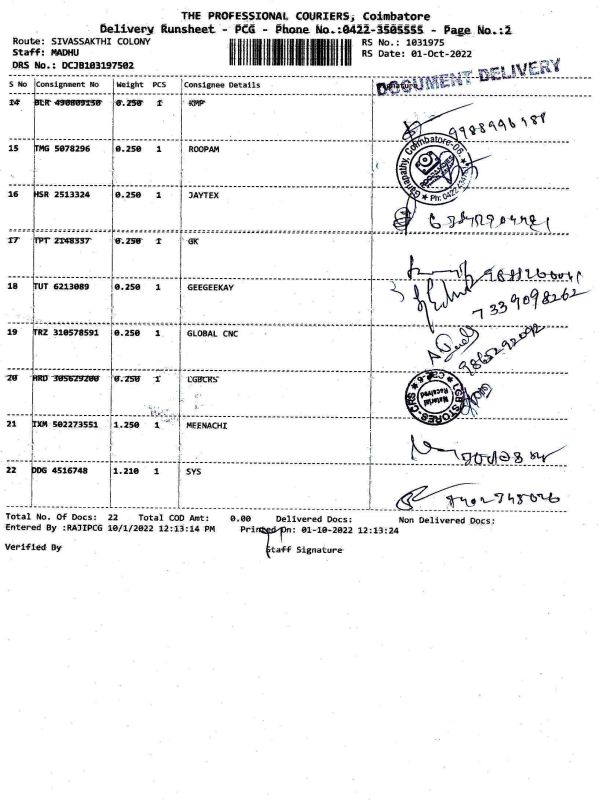 THE PROFESSIONAL COURIERS, Coimbatore
Delivery Runsheet - PCG - Phone No.:0422-3505555 - Page No.:2
Route: SIVASSAKTHI COLONY RS No.: 1031975
Staff: MADHU RS Date: 01-Oct-2022
DRS No.: DCJB103197502
DOCUMENT DELIVERY
S No Consignment No Weight PCS Consignee Details Signature
14 BLR 490809150 0.250 1 KMP
15 TMG 5078296 0.250 1 ROOPAM
Ganapathy, Coimbatore-06.
16 HSR 2513324 0.250 1 JAYTEX
17 TPT 2148337 0.250 1 GK
18 TUT 6213089 0.250 1 GEEGEEKAY
7339098262
19 TRZ 310578591 0.250 1 GLOBAL CNC
20 HRD 305629200 0.250 1 LGBCRS
LGB STORES-CRS CBE-6
Material Received
21 IXM 502273551 1.250 1 MEENACHI
22 DDG 4516748 1.210 1 SYS
Total No. Of Docs: 22 Total COD Amt: 0.00 Delivered Docs: Non Delivered Docs:
Entered By :RAJIPCG 10/1/2022 12:13:14 PM Printed On: 01-10-2022 12:13:24
Verified By Staff Signature